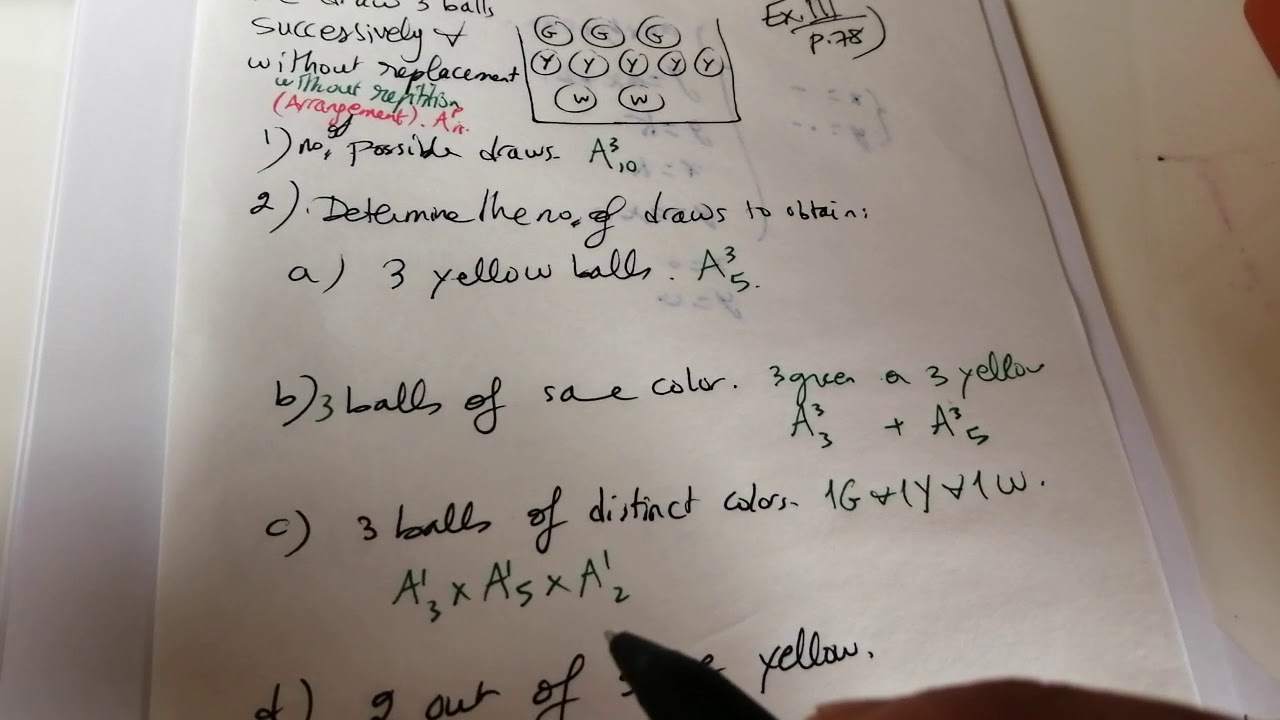 draw 3 balls
Successively &
without replacement
without reptition
(Arrangement).
Ex.III
p.78)
G G G
Y Y Y Y Y
W W
1) no. of possible draws. A³₁₀
2). Determine the no. of draws to obtain:
a) 3 yellow balls. A³₅.
b) 3 balls of same color. 3 green or 3 yellow
A³₃ + A³₅
c) 3 balls of distinct colors. 1G & 1Y & 1W.
A¹₃ x A¹₅ x A¹₂
d) 2 out of yellow.